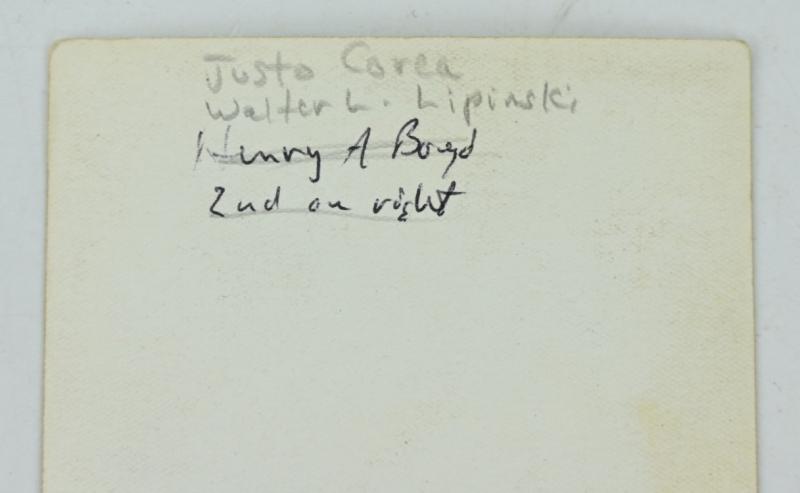 Justo Corea
Walter L. Lipinski
Henry A Boyd
2nd on right